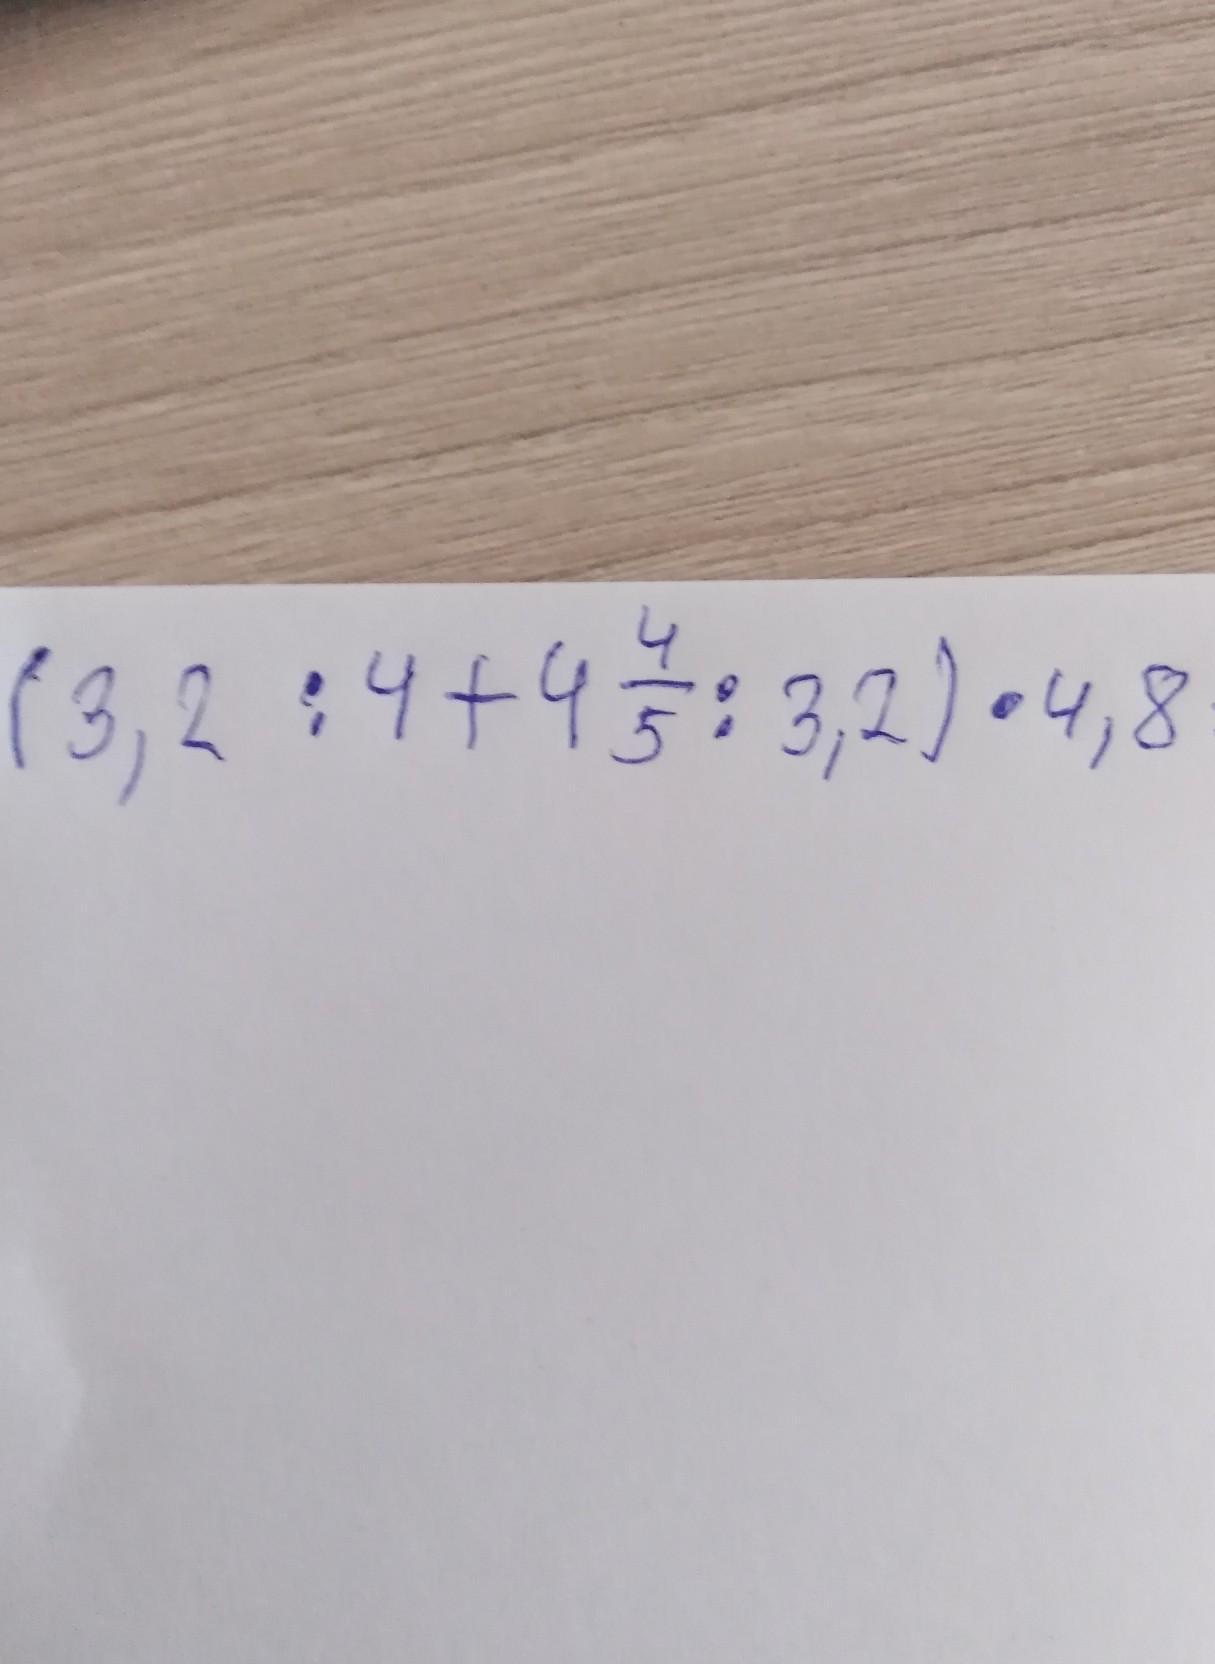 (3,2 : 4 + 4 4/5 : 3,2) • 4,8